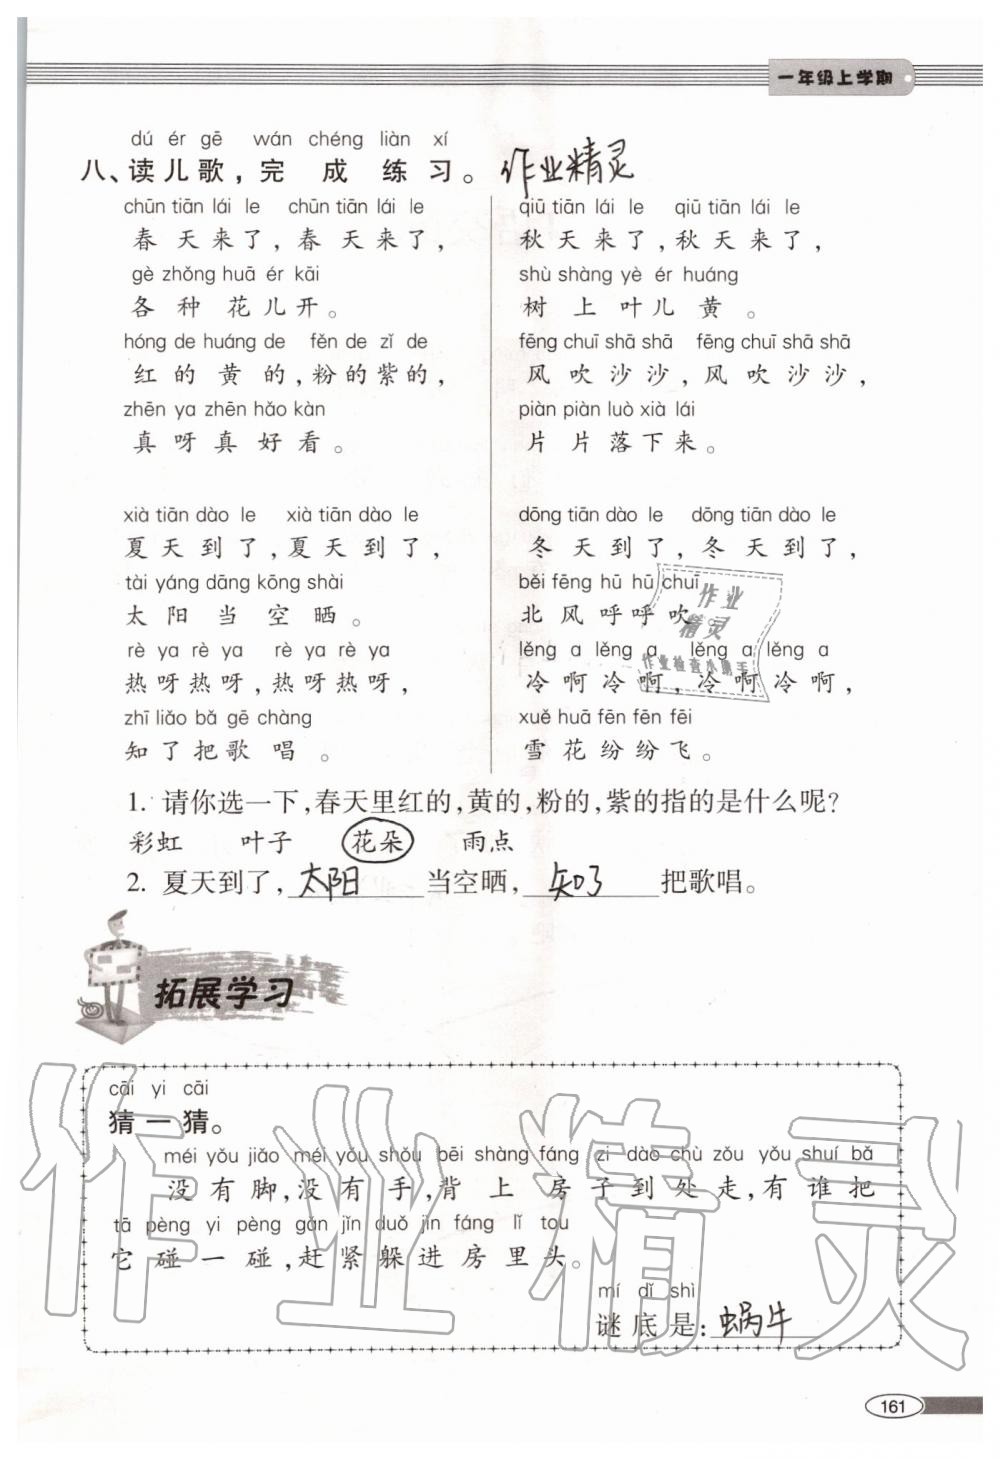 一年级上学期
dú ér gē wán chéng liàn xí
八、读儿歌，完成练习。 作业精灵
chūn tiān lái le chūn tiān lái le
春天来了，春天来了，
gè zhǒng huā ér kāi
各种花儿开。
hóng de huáng de fěn de zǐ de
红的黄的，粉的紫的，
zhēn ya zhēn hǎo kàn
真呀真好看。
xià tiān dào le xià tiān dào le
夏天到了，夏天到了，
tài yáng dāng kōng shài
太阳当空晒。
rè ya rè ya rè ya rè ya
热呀热呀，热呀热呀，
zhī liǎo bǎ gē chàng
知了把歌唱。
qiū tiān lái le qiū tiān lái le
秋天来了，秋天来了，
shù shàng yè ér huáng
树上叶儿黄。
fēng chuī shā shā fēng chuī shā shā
风吹沙沙，风吹沙沙，
piàn piàn luò xià lái
片片落下来。
dōng tiān dào le dōng tiān dào le
冬天到了，冬天到了，
běi fēng hū hū chuī
北风呼呼吹。
lěng a lěng a lěng a lěng a
冷啊冷啊，冷啊冷啊，
xuě huā fēn fēn fēi
雪花纷纷飞。
作业
精灵
作业检查小助手
1. 请你选一下，春天里红的，黄的，粉的，紫的指的是什么呢？
彩虹 叶子 花朵 雨点
2. 夏天到了，太阳当空晒，知了把歌唱。
拓展学习
cāi yi cāi
猜一猜。
méi yǒu jiǎo méi yǒu shǒu bēi shàng fáng zi dào chù zǒu yǒu shuí bǎ
没有脚，没有手，背上房子到处走，有谁把
tā pèng yi pèng gǎn jǐn duǒ jìn fáng lǐ tou
它碰一碰，赶紧躲进房里头。
mí dǐ shì
谜底是：蜗牛
作业精灵
161